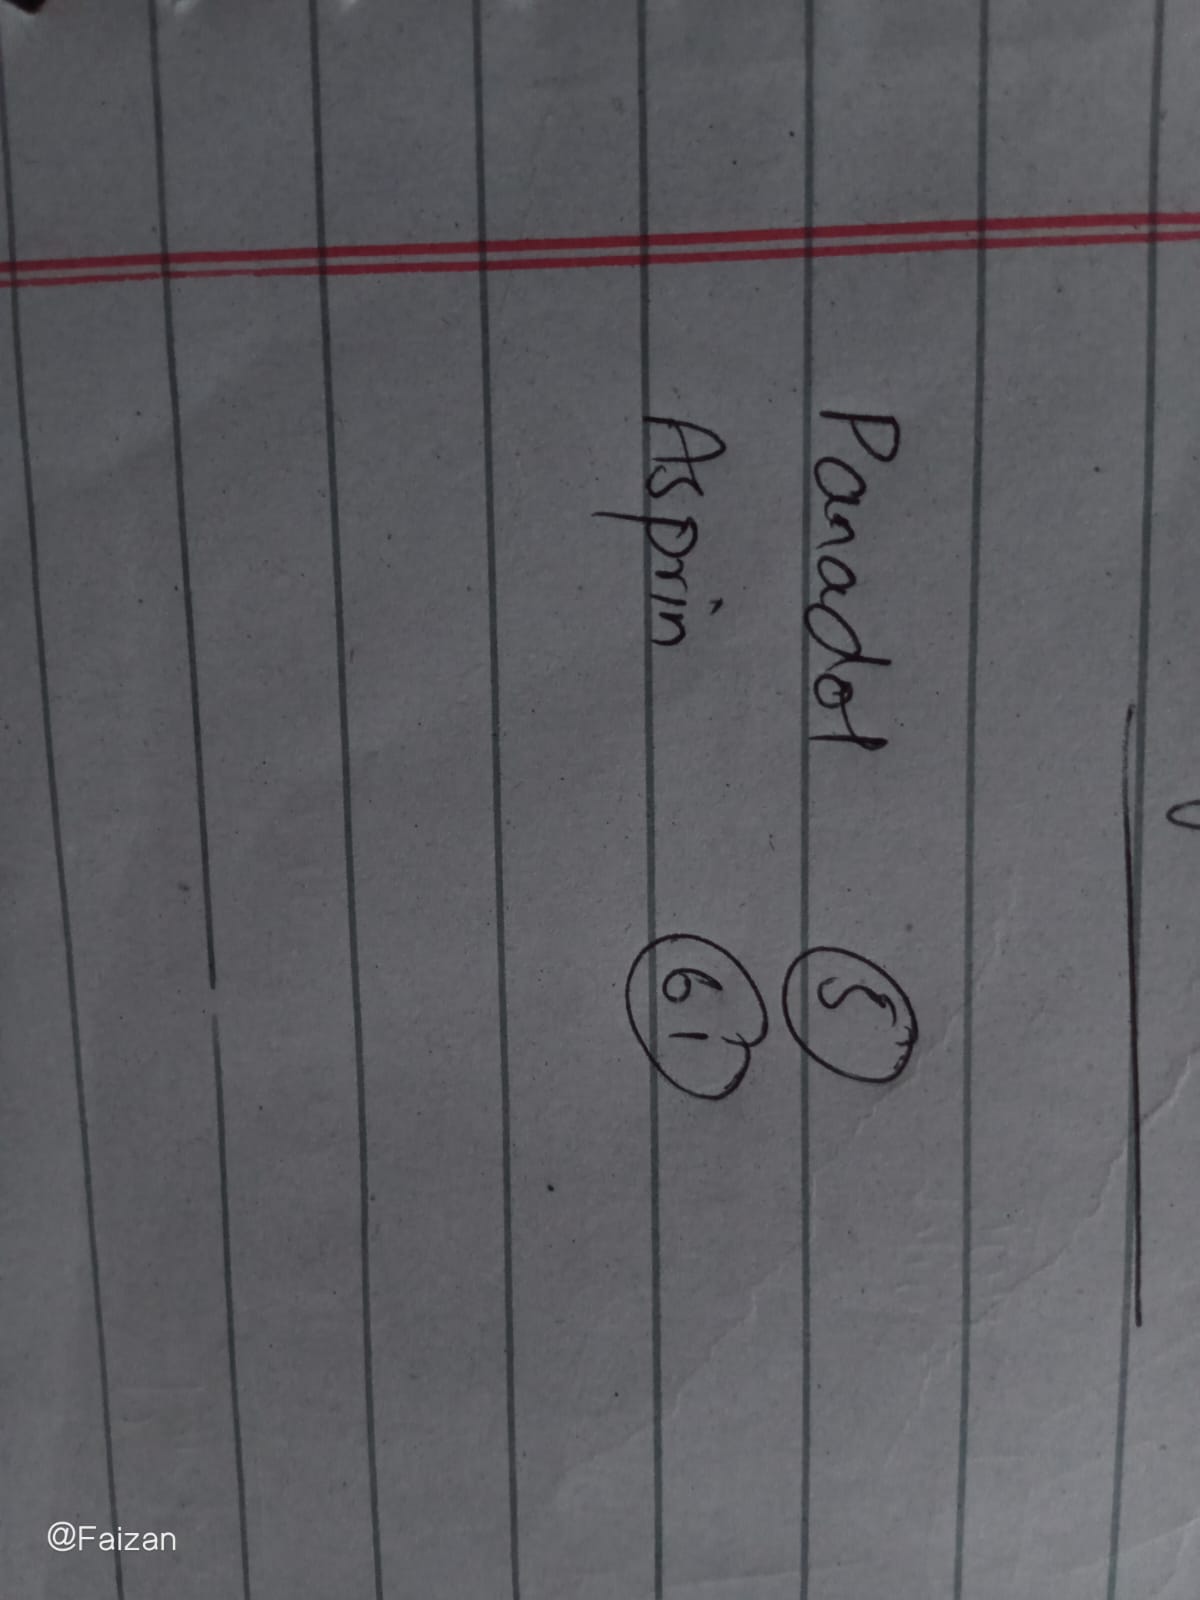 Panadol 5
Asprin 61
@Faizan